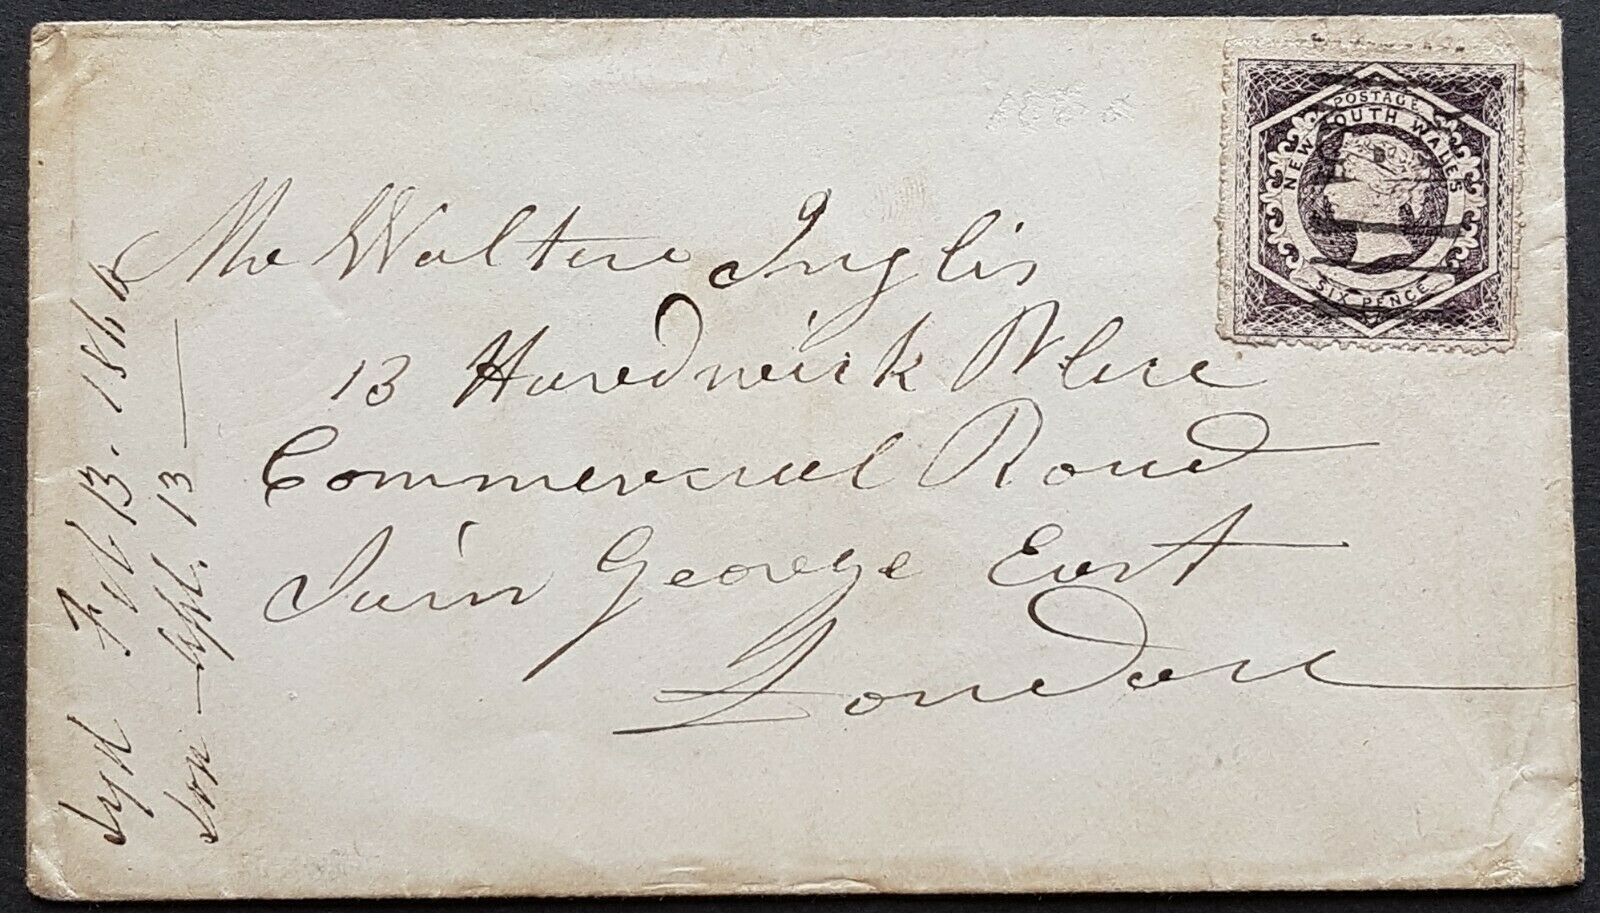 POSTAGE
NEW SOUTH WALES
SIX PENCE
Mr Walter Inglis
13 Hardwick Place
Commercial Road
Sain George East
London
Syd Feb 13. 186
Lon Sept. 13